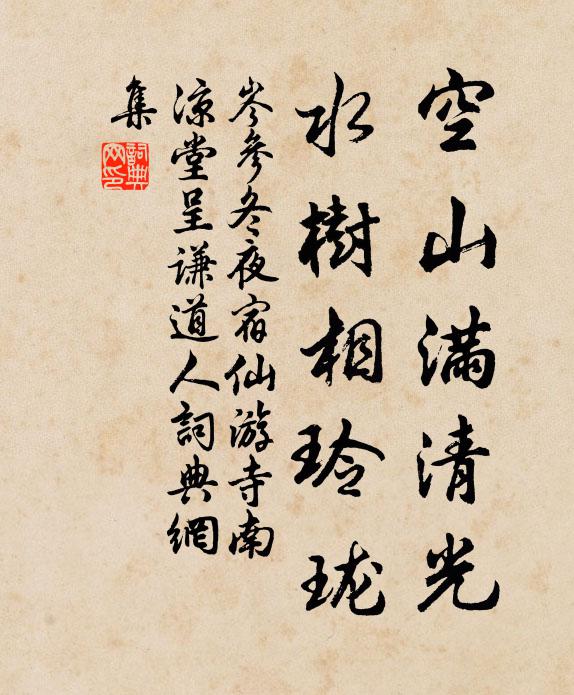 空山满清光
水樹相玲珑
岑參冬夜宿仙游寺南
凉堂呈谦道人詞典網
集
詞典
网印